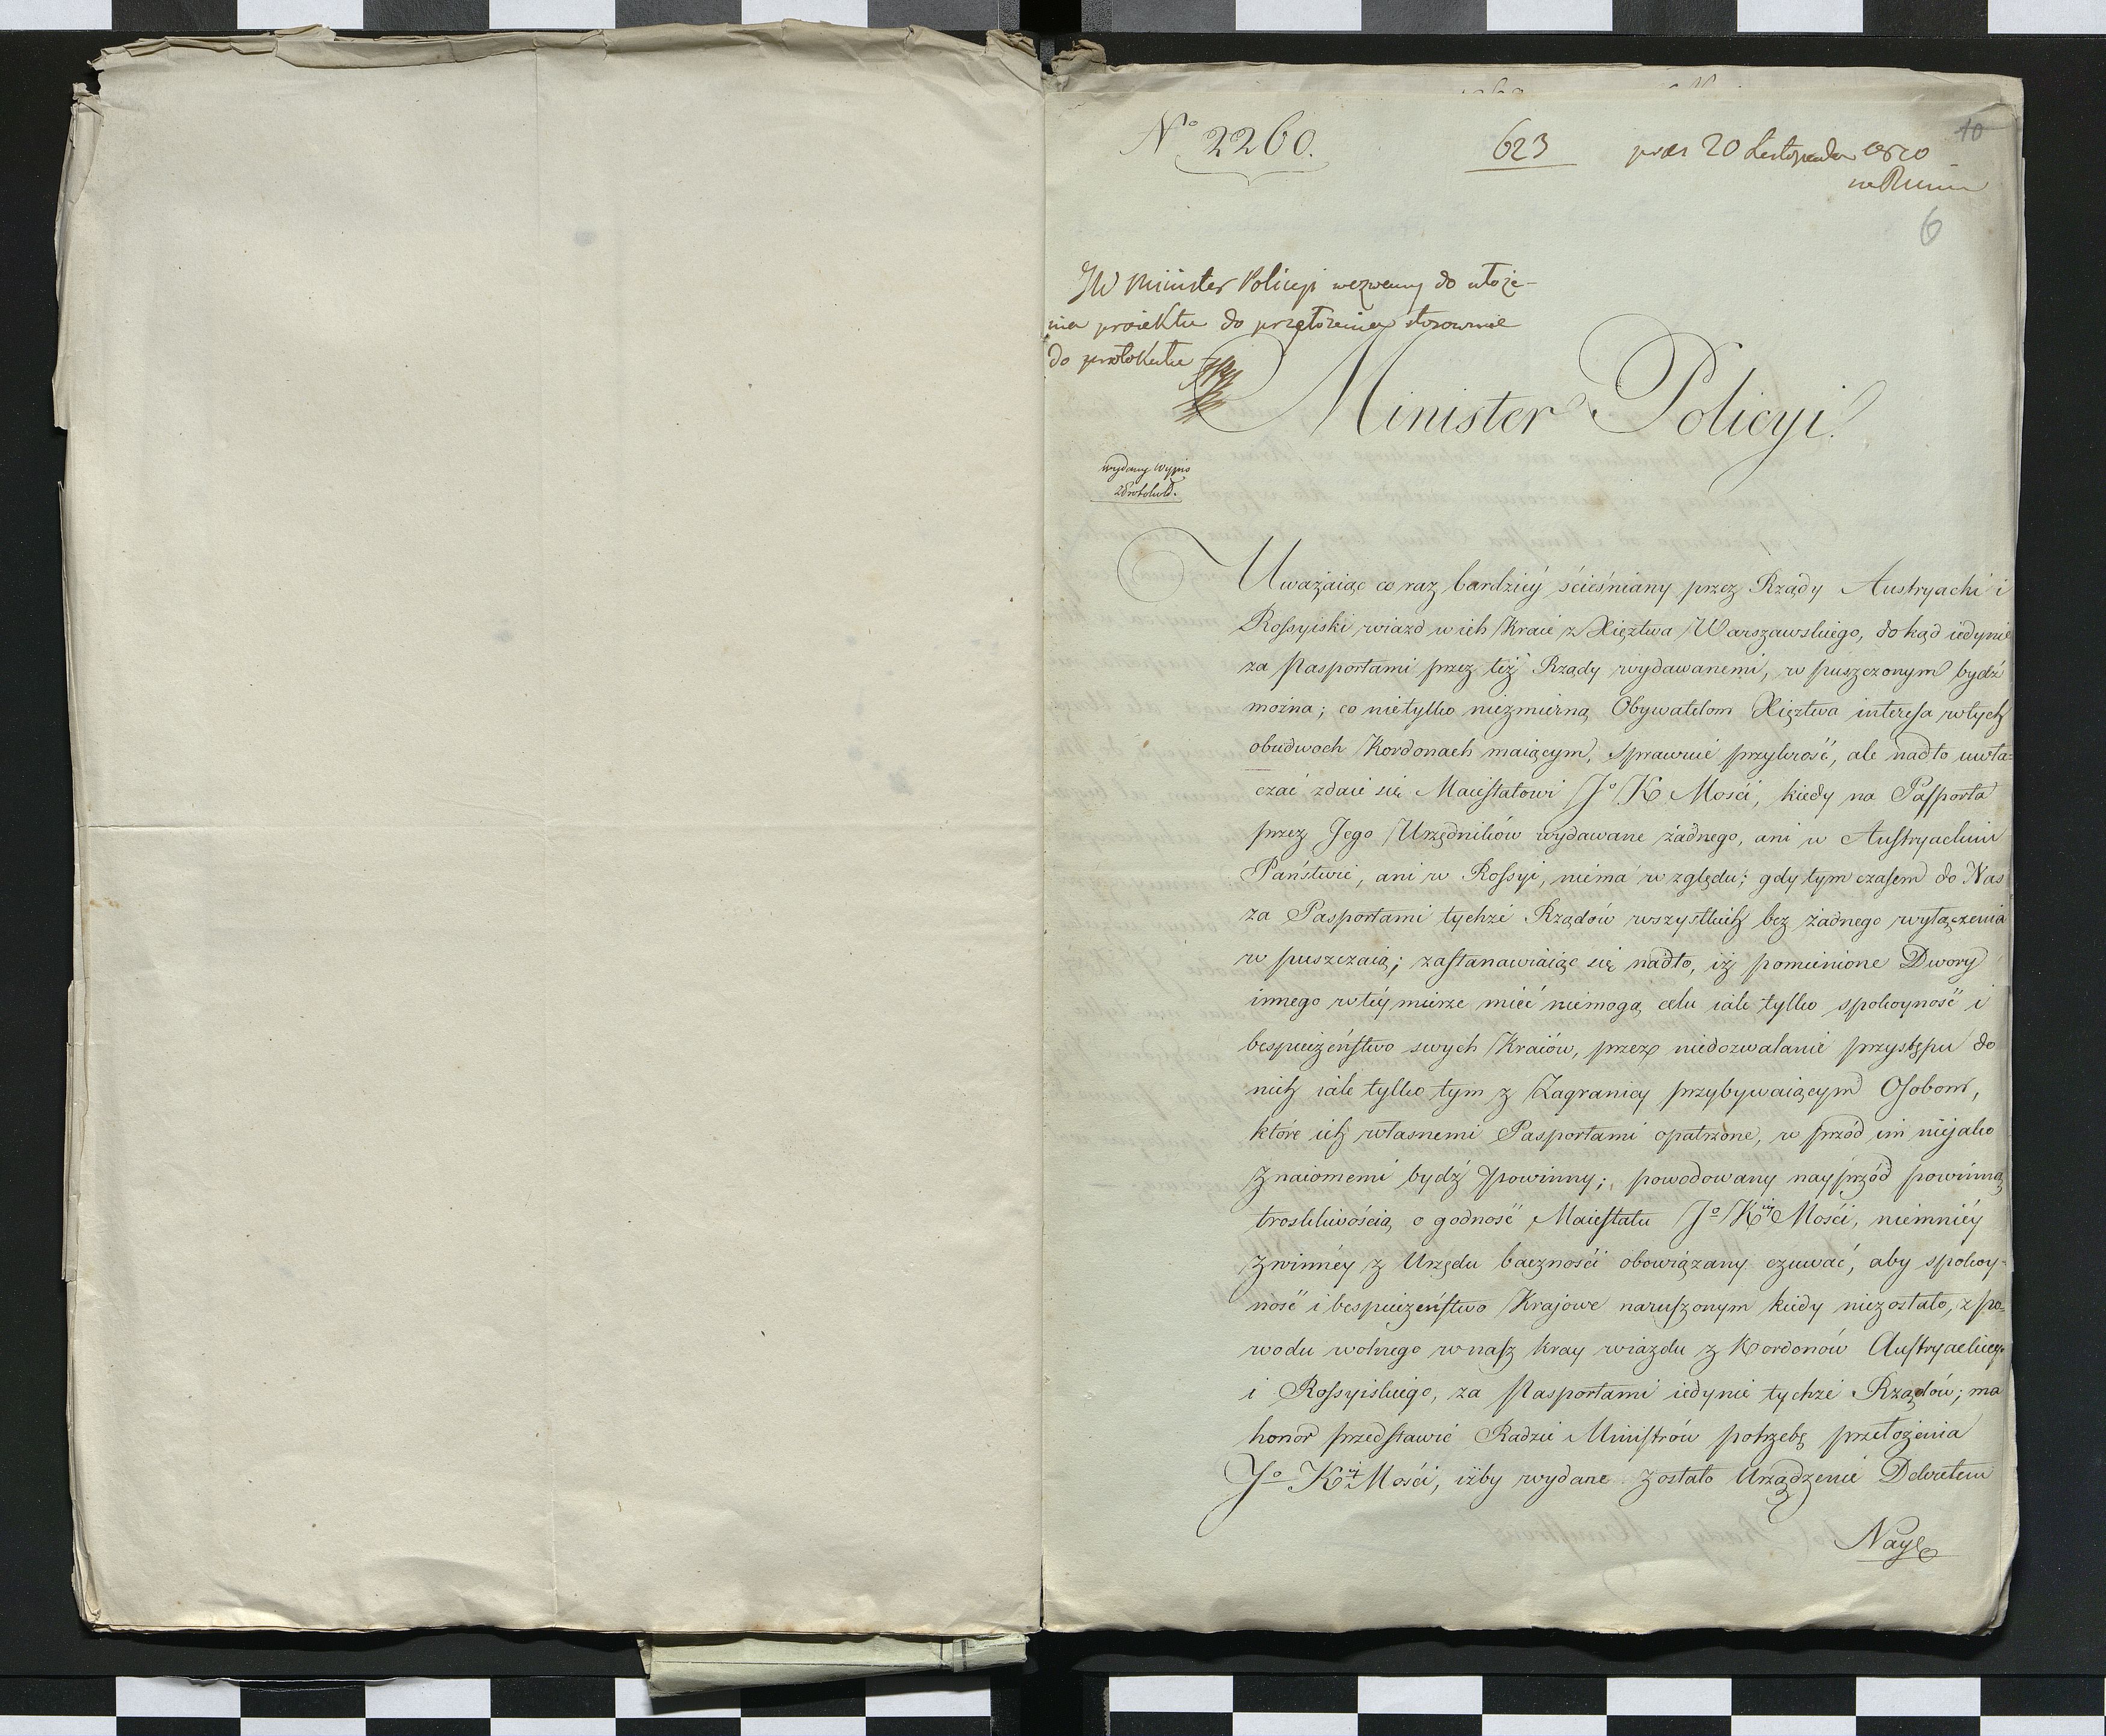 No 2260.
623
prez 20 Listopada 1810
10
6
JW Minister Policyi wezwany do ułoże-
nia proiektu do przełożenia stosownie
do protokułu
Minister Policyi.
wydany Wypis
z Protokuł.
Uważaiąc co raz bardziéy ścieśniany przez Rządy Austryacki i
Rossyiski wiazd w ich Kraie z Xięztwa Warszawskiego, do kąd iedynie
za Pasportami przez też Rządy wydawanemi, w puszczonym bydź
można; co nietylko niezmierną Obywatelom Xięztwa interesa w tych
obudwoch Kordonach maiącym, sprawuie przykrość, ale nadto uwła-
czać zdaie się Maiestatowi Jo K Mości, kiedy na Passporta
przez Jego Urzędników wydawane żadnego, ani w Austryackim
Państwie, ani w Rossyi, niema względu; gdy tym czasem do Nas
za Pasportami tychże Rządów wszystkich bez żadnego wyłączenia
w puszczaią; zastanawiaiąc się nadto, iż pomienione Dwory
innego w téy mierze mieć niemogą celu iak tylko spokoyność i
bespieczeństwo swych Kraiów, przez niedozwalanie przystępu do
nich iak tylko tym z Zagranicy przybywaiącym Osobom,
które ich własnemi Pasportami opatrzone, w przód im niejako
znaiomemi bydź powinny; powodowany nayprzód powinną
troskliwością o godność Maiestatu Jo Kiéy Mości, niemniéy
z winnéy z Urzędu baczności obowiązany czuwać, aby spokoy-
ność i bespieczeństwo Krajowe naruszonym kiedy niezostało, z po-
wodu wolnego w nasz kray wiazdu z Kordonów Austryackiego
i Rossyiskiego, za Pasportami iedynie tychże Rządów; ma
honor przedstawić Radzie Ministrów potrzebę przełożenia
Jo Kéy Mości, iżby wydane zostało Urządzenie Dekretem
Nay